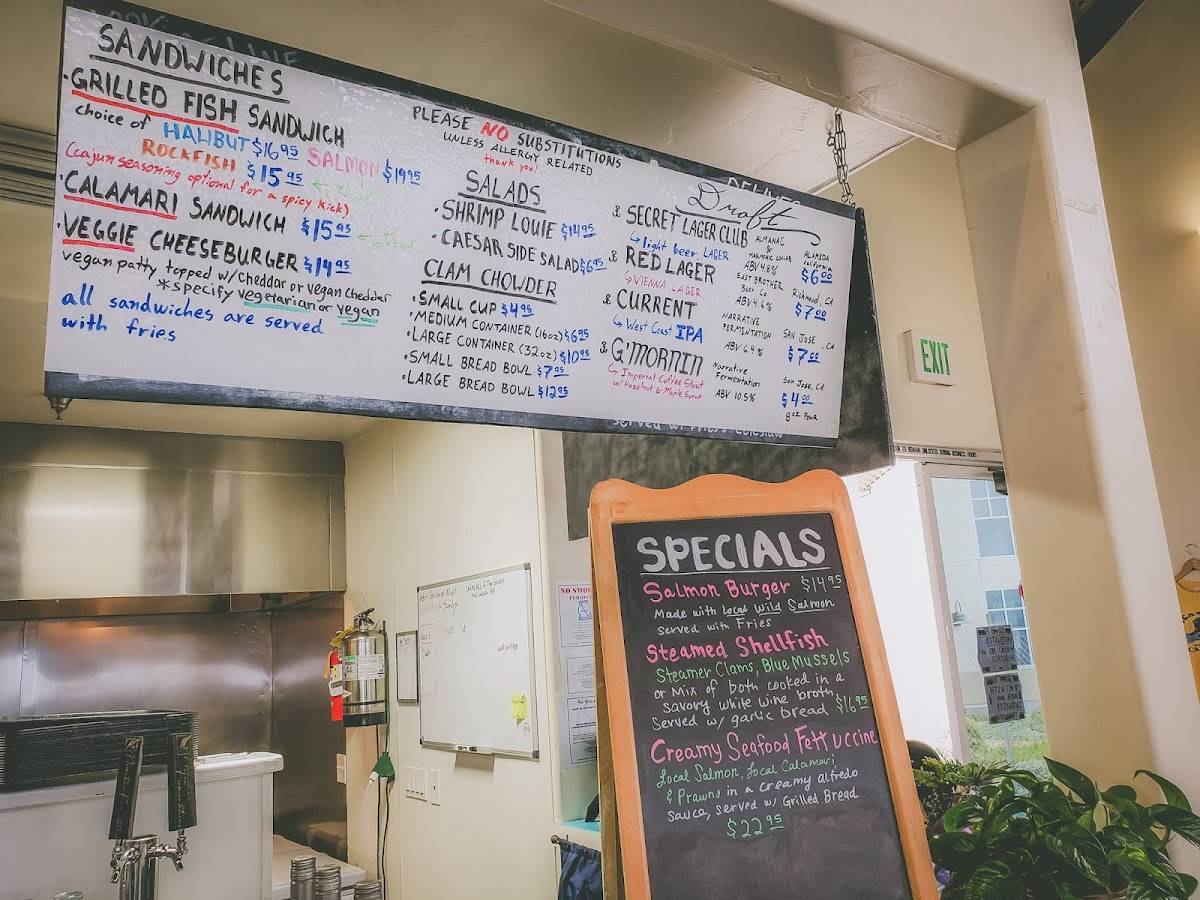 SANDWICHES
·GRILLED FISH SANDWICH
choice of HALIBUT $16.95 SALMON $19.95
ROCKFISH $15.95
(cajun seasoning optional for a spicy kick)
·CALAMARI SANDWICH $15.95
·VEGGIE CHEESEBURGER $14.95
vegan patty topped w/cheddar or vegan cheddar
*specify vegetarian or vegan
all sandwiches are served
with fries
PLEASE NO SUBSTITUTIONS
UNLESS ALLERGY RELATED
thank you!
SALADS
·SHRIMP LOUIE $14.95
·CAESAR SIDE SALAD $6.95
CLAM CHOWDER
·SMALL CUP $4.95
·MEDIUM CONTAINER (16oz) $6.95
·LARGE CONTAINER (32oz) $10.95
·SMALL BREAD BOWL $7.95
·LARGE BREAD BOWL $12.95
Draft
SECRET LAGER CLUB
light beer LAGER
ALMANAC
&
HARMONIC COLLAB
ABV 4.8%
ALAMEDA
California
$6.00
RED LAGER
VIENNA LAGER
EAST BROTHER
Beer Co.
ABV 4.6%
Richmond, CA
$7.00
CURRENT
West Coast IPA
NARRATIVE
FERMENTATION
ABV 6.4%
SAN JOSE, CA
$7.00
G'MORNIN
Imperial Coffee Stout
w/ Hazelnut & Maple Syrup
Narrative
Fermentation
ABV 10.5%
San Jose, CA
$4.00
8oz POUR
served w/ Fries
EXIT
SPECIALS
Salmon Burger $14.95
Made with Local Wild Salmon
served with Fries
Steamed Shellfish
Steamer Clams, Blue Mussels
or Mix of both cooked in a
savory white wine broth,
Served w/ garlic bread $16.95
Creamy Seafood Fettuccine
Local Salmon, Local Calamari,
& Prawns in a creamy alfredo
sauce, served w/ Grilled Bread
$22.95